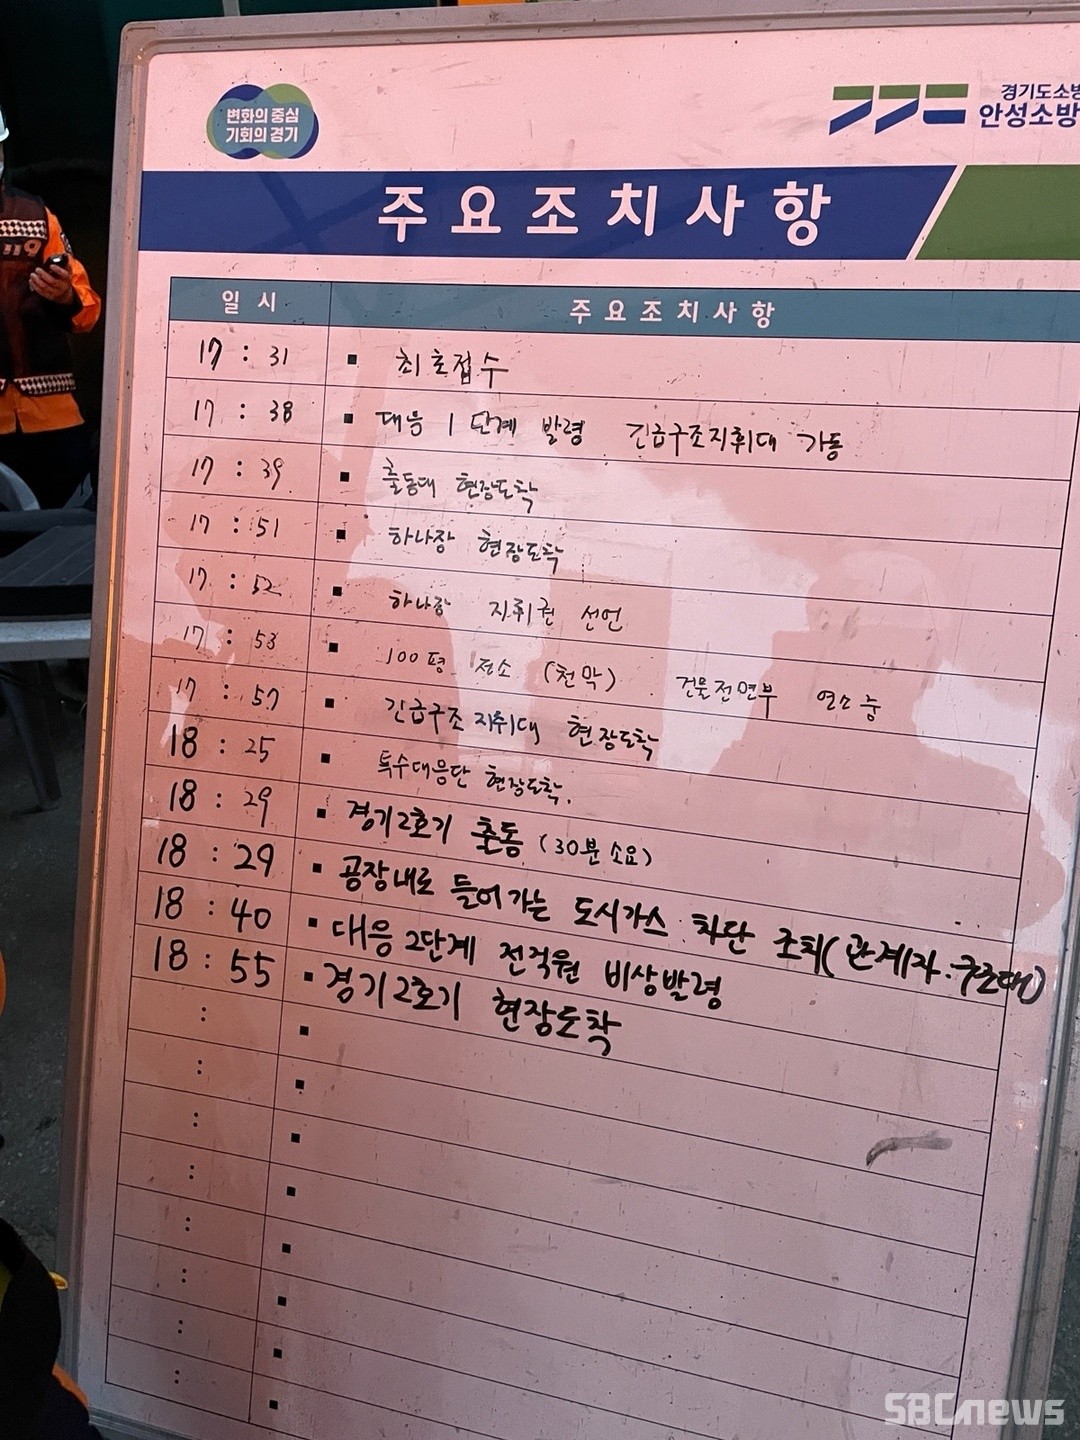 변화의 중심
기회의 경기
경기도소방
안성소방
주요조치사항
일시 주요조치사항
17 : 31 ▪ 최초접수
17 : 38 ▪ 대응 1단계 발령 긴급구조지휘대 가동
17 : 39 ▪ 출동대 현장도착
17 : 51 ▪ 하나장 현장도착
17 : 52 ▪ 하나장 지휘권 선언
17 : 53 ▪ 100평 전소 (천막) 건물전면부 연소중
17 : 57 ▪ 긴급구조지휘대 현장도착
18 : 25 ▪ 특수대응단 현장도착.
18 : 29 ▪ 경기2호기 출동 (30분 소요)
18 : 29 ▪ 공장내로 들어가는 도시가스 차단 조치(관계자.구조대)
18 : 40 ▪ 대응 2단계 전직원 비상발령
18 : 55 ▪ 경기2호기 현장도착
119
SBCnews